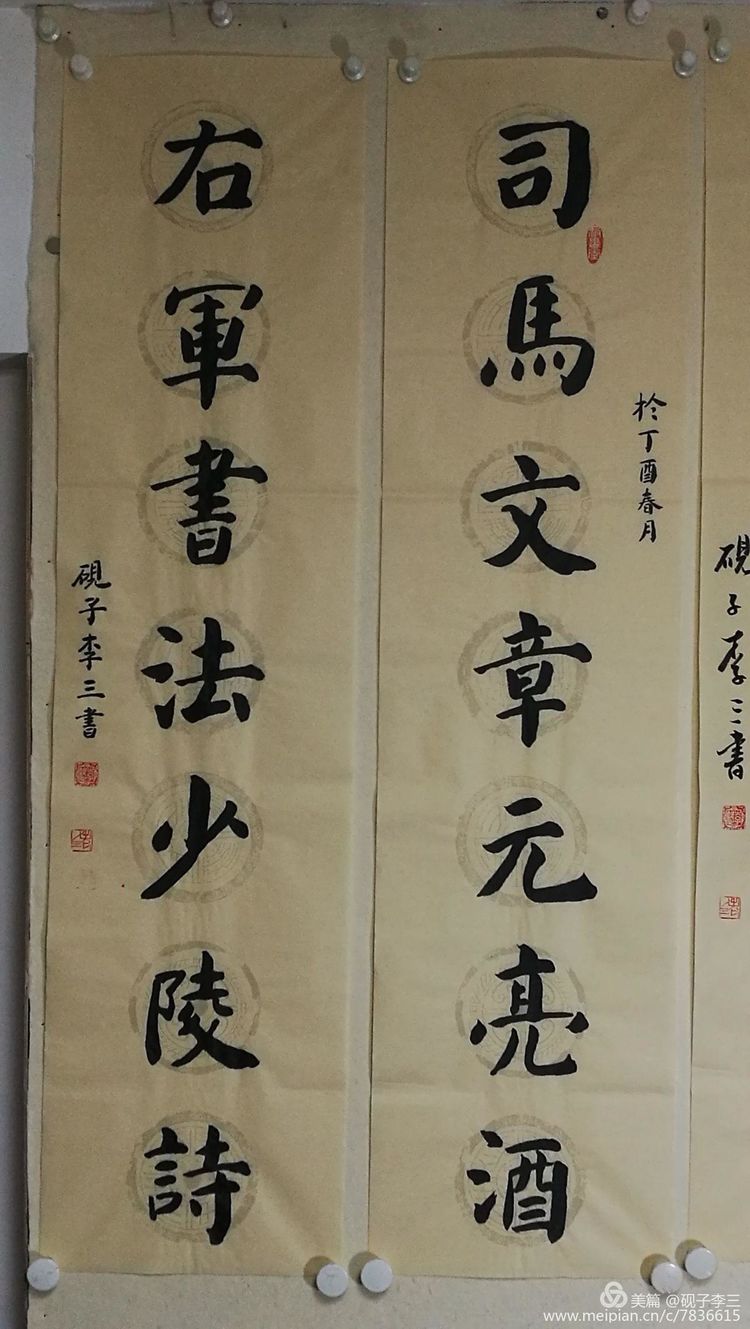 司馬文章元亮酒
於丁酉春月
右軍書法少陵詩
硯子李三書
硯子李三書
美篇 @砚子李三
www.meipian.cn/c/7836615